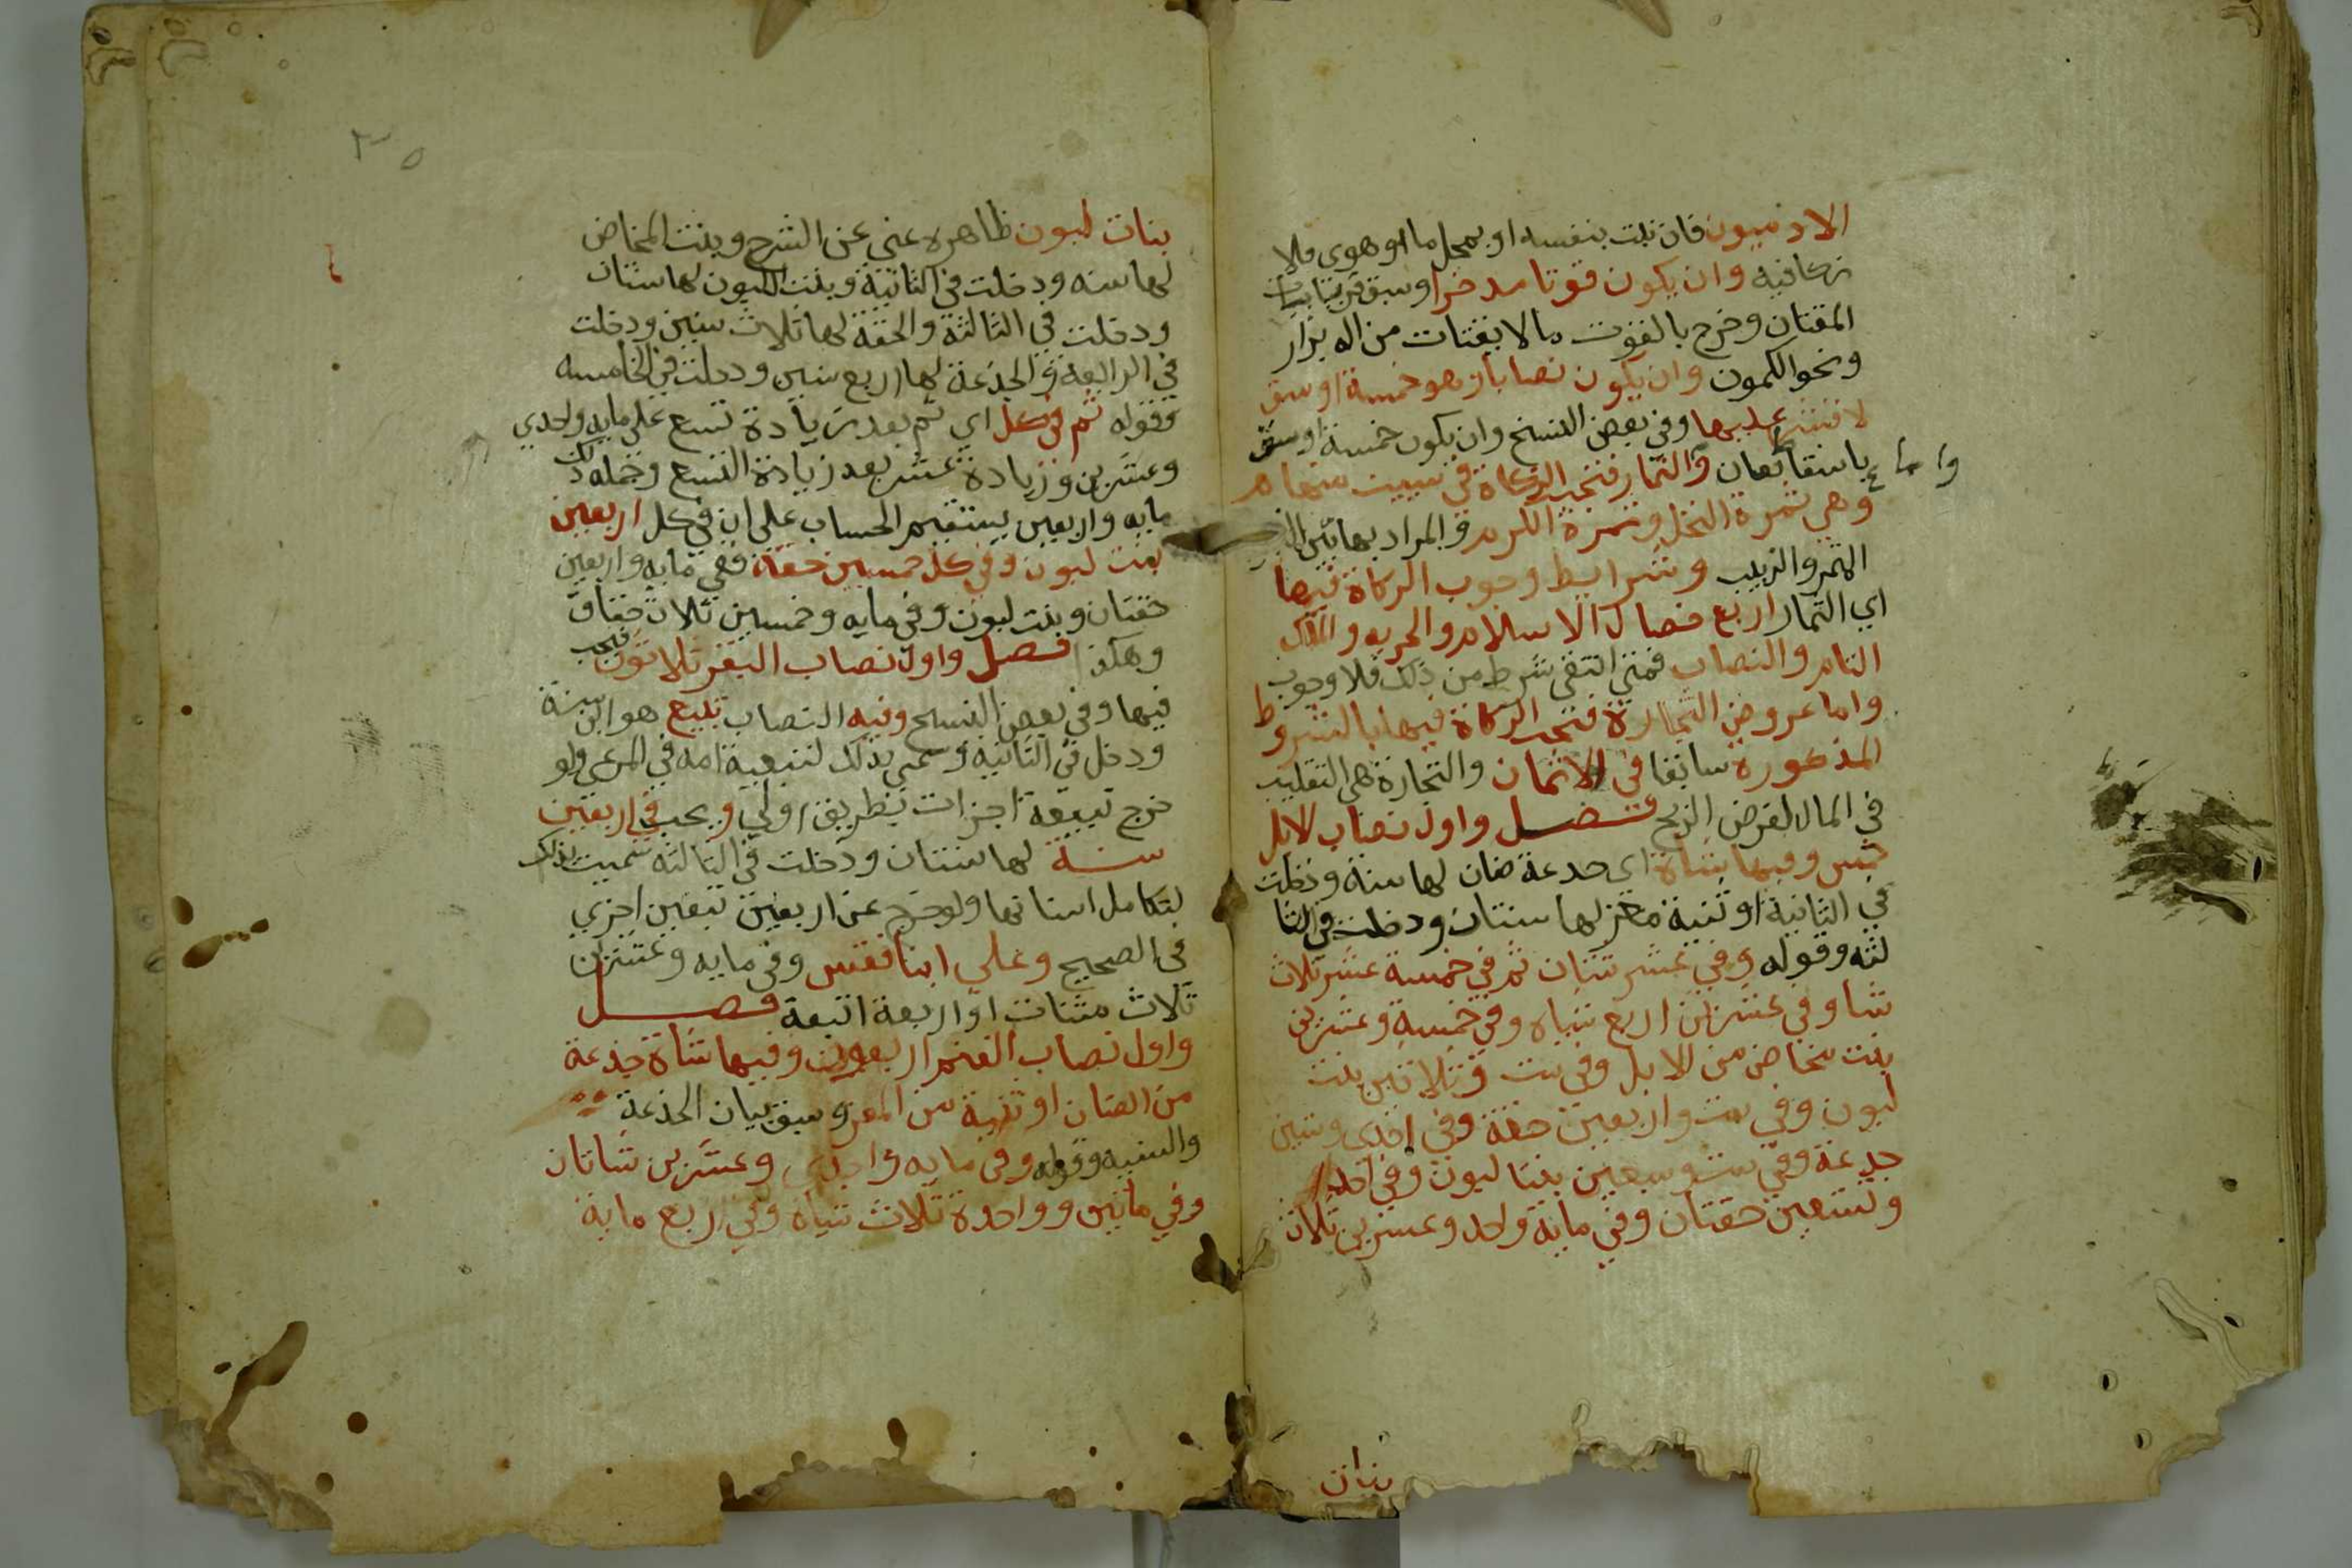 الادميون فان نبت بنفسه او بحمل ماء او هوى فلا
زكاة فيه وان يكون قوتا مدخرا وسبق قريبا بيان
المقتات وخرج بالقوت ما لا يقتات من الابزار
ونحو الكمون وان يكون نصابا وهو خمسة اوسق
لا قشر عليها وفي بعض النسخ وان يكون خمسة اوسق
باسقاط نصاب واما الثمار فتجب الزكاة في شيئين منها
وهي ثمرة النخل وثمرة الكرم والمراد بهاتين
التمر والزبيب وشرايط وجوب الزكاة فيها
اي الثمار اربع خصال الاسلام والحريه والملك
التام والنصاب فمتي انتفى شرط من ذلك فلا وجوب
واما عروض التجارة فتجب الزكاة فيها بالشروط
المذكورة سابقا في الاثمان والتجارة هي التقليب
في المال لغرض الربح فصل واول نصاب الابل
خمس وفيها شاة اى جدعة ضان لها سنة ودخلت
في الثانية او ثنية معز لها سنتان ودخلت في الثا
لثه وقوله وفي عشر شتان ثم في خمسة عشر ثلاث
شيا وفي عشرين اربع شياه وفي خمسة وعشرين
بنت مخاض من الابل وفي ست وثلاثين بنت
لبون وفي ست واربعين حقة وفي احدى وستين
جدعة وفي ست وسبعين بنتا لبون وفي احد
وتسعين حقتان وفي ماية واحد وعشرين ثلاث
بنات
٣٥
بنات لبون ظاهره غني عن الشرح وبنت المخاض
لها سنه ودخلت في الثانية وبنت اللبون لها سنتان
ودخلت في الثالثة والحقة لها ثلاث سنين ودخلت
في الرابعة والجذعة لها اربع سنين ودخلت في الخامسه
وقوله ثم في كل اي ثم بعد زيادة تسع على مايه واحدي
وعشرين وزيادة عشر بعد زيادة التسع وجمله ذلك
مايه واربعين يستقيم الحساب على ان في كل اربعين
بنت لبون وفي كل خمسين حقة ففي مايه واربعين
حقتان وبنت لبون وفي مايه وخمسين ثلاث حقاق
وهكذا فصل واول نصاب البقر ثلاثون فيجب
فيها وفي بعض النسخ وفيه النصاب تبيع هو ابن سنة
ودخل في الثانيه وسمى بذلك لتبعية امه في المرعي ولو
خرج تبيعة اجزات بطريق اولي ويجب في اربعين
سنة لها سنتان ودخلت في الثالثه سميت بذلك
لتكامل اسنانها ولو خرج عن اربعين تبعين اجزي
في الصحيح وعلى ابنا فقس وفي مايه وعشرين
ثلاث مسنات او اربعة اتبعة فصل
واول نصاب الغنم اربعون وفيها شاة جذعة
من الضان او ثنية من المعز وسبق بيان الجذعة
والثنيه وقوله وفي مايه واحدى وعشرين شاتان
وفي ماتين وواحدة ثلاث شياه وفي اربع ماية